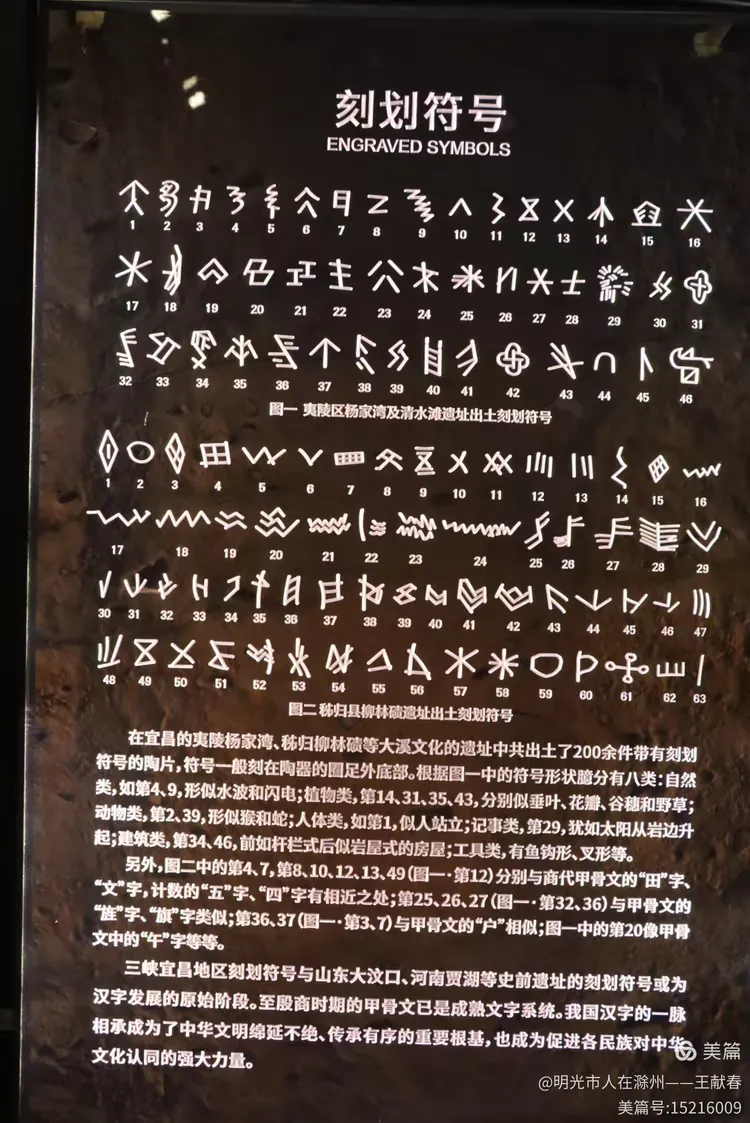 刻划符号
ENGRAVED SYMBOLS
1 2 3 4 5 6 7 8 9 10 11 12 13 14 15 16
17 18 19 20 21 22 23 24 25 26 27 28 29 30 31
32 33 34 35 36 37 38 39 40 41 42 43 44 45 46
图一 夷陵区杨家湾及清水滩遗址出土刻划符号
1 2 3 4 5 6 7 8 9 10 11 12 13 14 15 16
17 18 19 20 21 22 23 24 25 26 27 28 29
30 31 32 33 34 35 36 37 38 39 40 41 42 43 44 45 46 47
48 49 50 51 52 53 54 55 56 57 58 59 60 61 62 63
图二 秭归县柳林碛遗址出土刻划符号
在宜昌的夷陵杨家湾、秭归柳林碛等大溪文化的遗址中共出土了200余件带有刻划
符号的陶片，符号一般刻在陶器的圈足外底部。根据图一中的符号形状臆分有八类：自然
类，如第4、9，形似水波和闪电；植物类，第14、31、35、43，分别似垂叶、花瓣、谷穗和野草；
动物类，第2、39，形似猴和蛇；人体类，如第1，似人站立；记事类，第29，犹如太阳从岩边升
起；建筑类，第34、46，前如杆栏式后似岩屋式的房屋；工具类，有鱼钩形、叉形等。
另外，图二中的第4、7，第8、10、12、13、49（图一·第12）分别与商代甲骨文的“田”字、
“文”字，计数的“五”字、“四”字有相近之处；第25、26、27（图一·第32、36）与甲骨文的
“旌”字、“旗”字类似；第36、37（图一·第3、7）与甲骨文的“户”相似；图一中的第20像甲骨
文中的“午”字等等。
三峡宜昌地区刻划符号与山东大汶口、河南贾湖等史前遗址的刻划符号或为
汉字发展的原始阶段。至殷商时期的甲骨文已是成熟文字系统。我国汉字的一脉
相承成为了中华文明绵延不绝、传承有序的重要根基，也成为促进各民族对中华
文化认同的强大力量。
美篇
@明光市人在滁州——王献春
美篇号:15216009